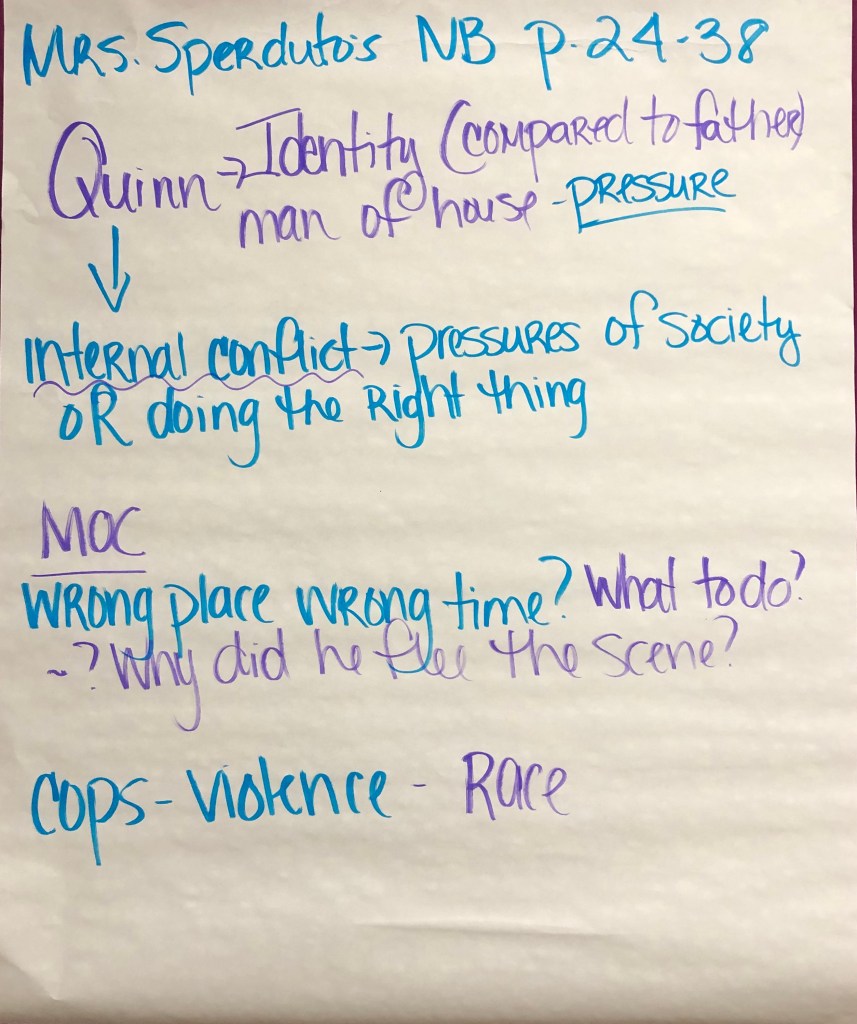 MRS. Sperduto's NB p. 24-38
Quinn → Identity (compared to father)
man of house - pressure
↓
internal conflict → pressures of society
OR doing the Right thing
MOC
WRong place WRong time? What to do?
~? Why did he flee the scene?
cops - violence - Race